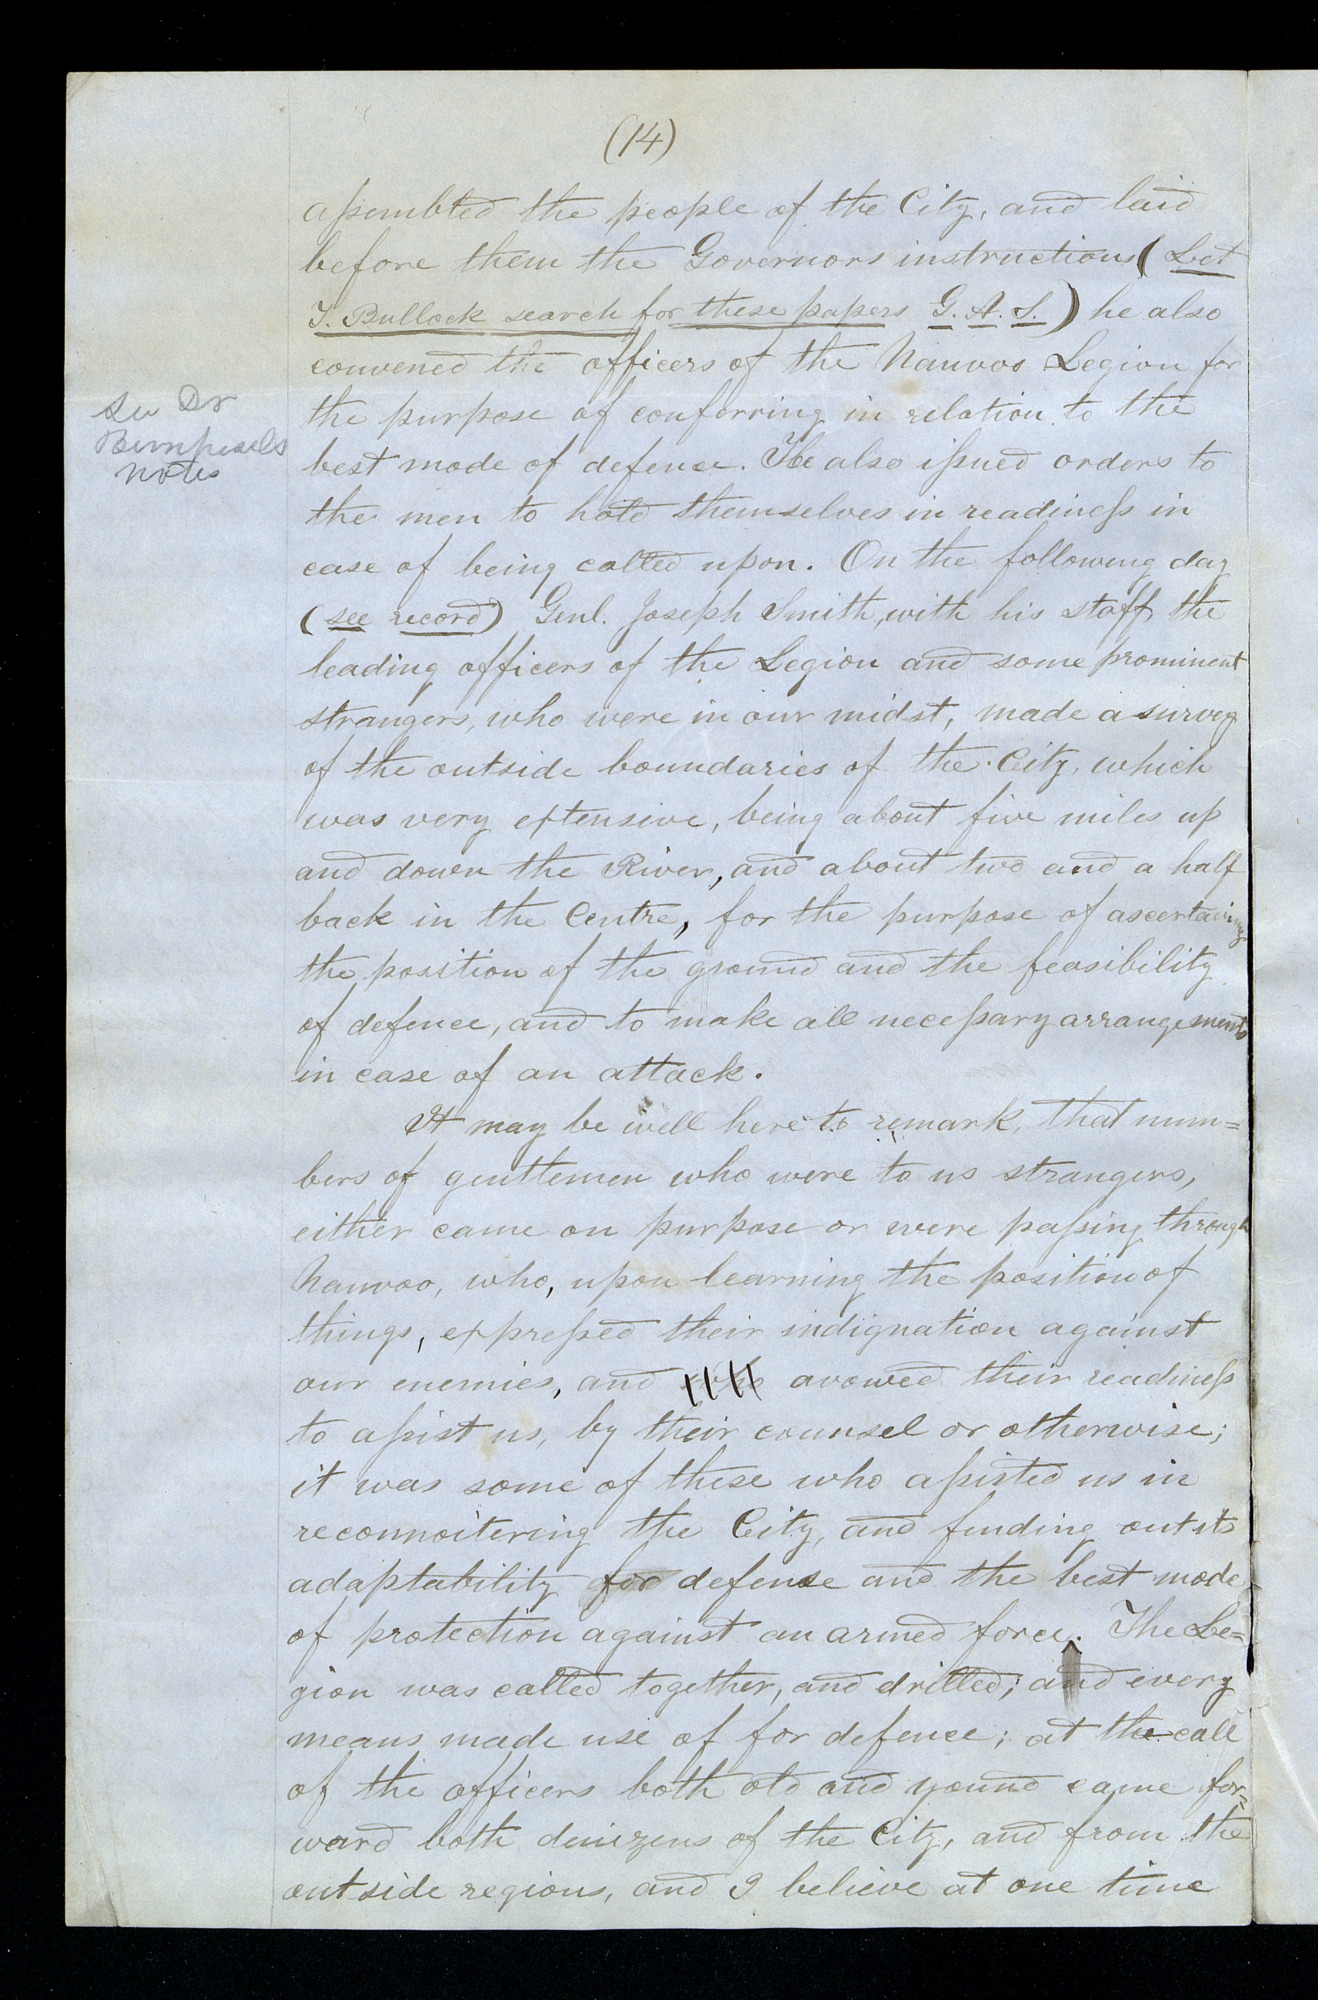 (14)
assembled the people of the City, and laid
before them the Governors instructions (Let
T. Bullock search for these papers G. A. S.) he also
convened the officers of the Nauvoo Legion for
the purpose of conferring in relation to the
See Dr
Bernhisels
notes
best mode of defence. He also issued orders to
the men to hold themselves in readiness in
case of being called upon. On the following day
(see record) Genl. Joseph Smith, with his staff, the
leading officers of the Legion and some prominent
strangers, who were in our midst, made a survey
of the outside boundaries of the City, which
was very extensive, being about five miles up
and down the River, and about two and a half
back in the Centre, for the purpose of ascertaining
the position of the ground and the feasibility
of defence, and to make all necessary arrangements
in case of an attack.
It may be well here to remark, that num=
bers of gentlemen who were to us strangers,
either came on purpose or were passing through
Nauvoo, who, upon learning the position of
things, expressed their indignation against
our enemies, and who avowed their readiness
to assist us, by their counsel or otherwise;
it was some of these who assisted us in
reconnoitering the City, and finding out its
adaptability for defense and the best mode
of protection against an armed force. The Le=
gion was called together, and drilled; and every
means made use of for defence; at the call
of the officers both old and yound came for=
ward both denizens of the City, and from the
outside regions, and I believe at one time